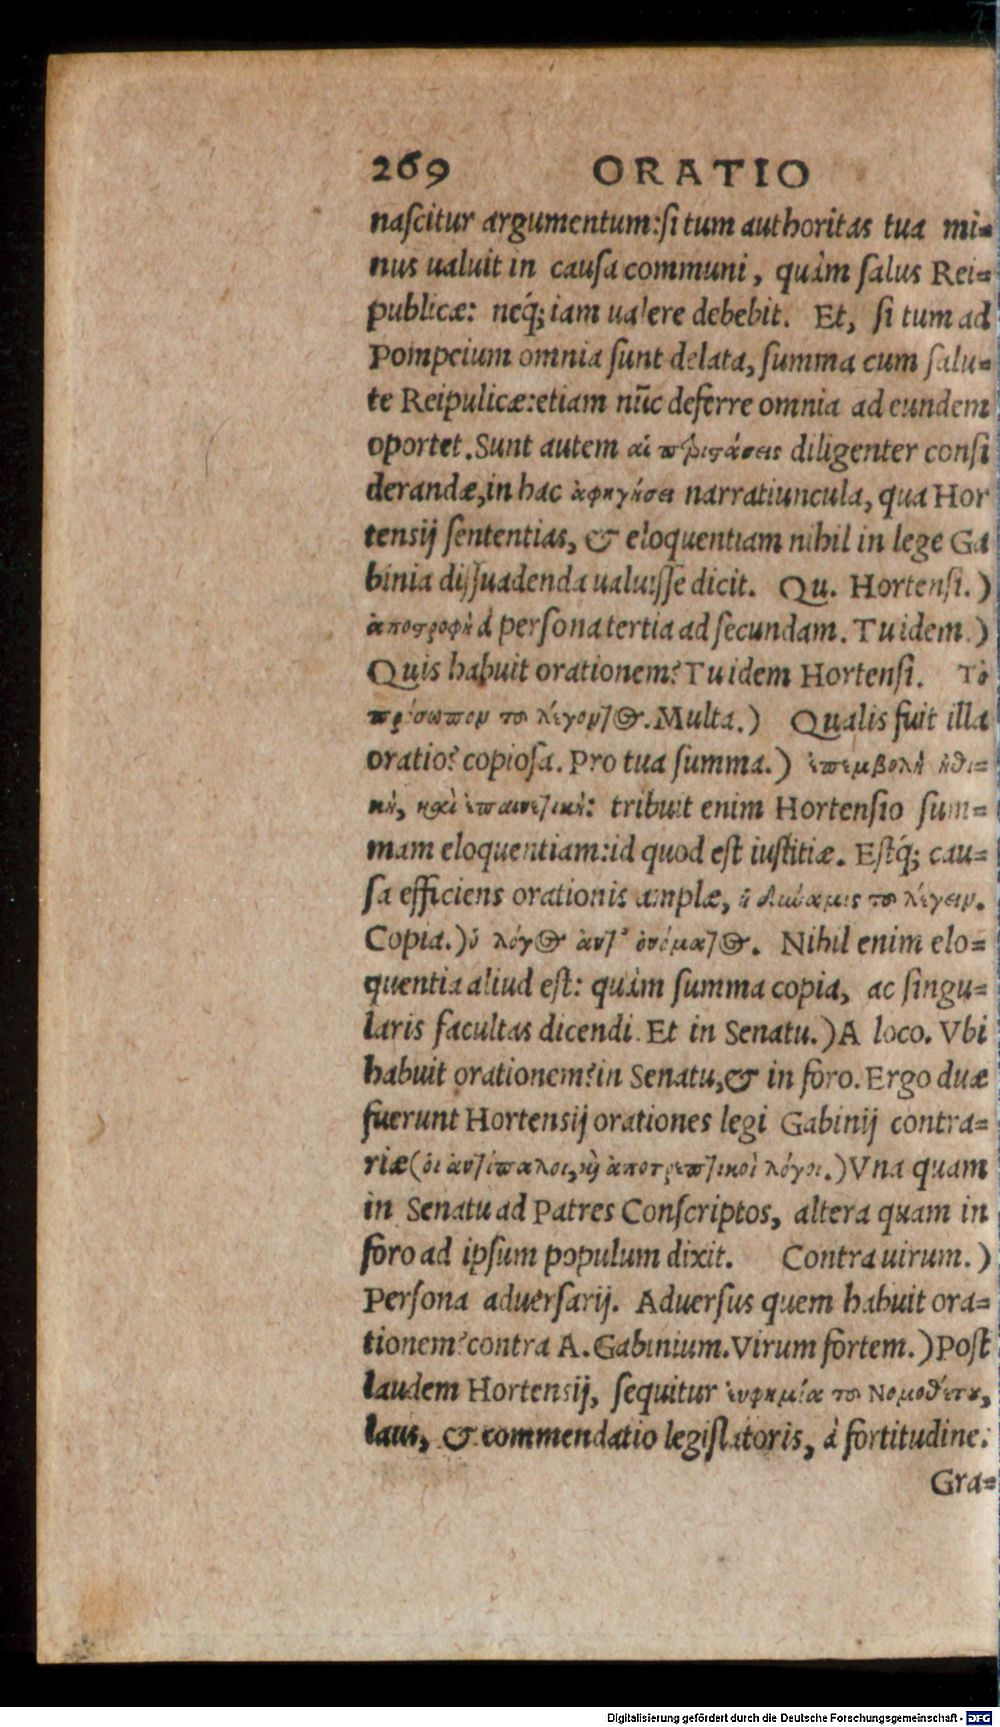 269 ORATIO
naſcitur argumentum:ſi tum authoritas tua mi=
nus ualuit in cauſa communi, quàm ſalus Rei=
publicæ: neq́; iam ualere debebit. Et, ſi tum ad
Pompeium omnia ſunt delata, ſumma cum ſalu=
te Reipulicæ:etiam nũc deferre omnia ad eundem
oportet. Sunt autem αἱ περιστάσεις diligenter conſi
derandæ, in hac ἀφηγήσει narratiuncula, qua Hor
tensij ſententias, & eloquentiam nihil in lege Ga
binia diſſuadenda ualuiſſe dicit. Qu. Hortenſi.)
ἀποστροφὴ à perſona tertia ad ſecundam. Tu idem.)
Quis habuit orationem? Tu idem Hortenſi. Τὸ
πρόσωπον τοῦ λέγοντος. Multa.) Qualis fuit illa
oratio? copioſa. Pro tua ſumma.) ἐπεμβολὴ ἠθι=
κὴ, καὶ ἐπαινετικὴ: tribuit enim Hortenſio ſum=
mam eloquentiam:id quod eſt iuſtitiæ. Eſtq́; cau=
ſa efficiens orationis amplæ, ἡ δύναμις τοῦ λέγειν.
Copia.) ὁ λόγος ἀντ' ὀνόματος. Nihil enim elo=
quentia aliud eſt: quàm ſumma copia, ac ſingu=
laris facultas dicendi. Et in Senatu.) A loco. Vbi
habuit orationem? in Senatu, & in foro. Ergo duæ
fuerunt Hortensij orationes legi Gabinij contra=
riæ (οἱ ἀντίπαλοι, καὶ ἀποτρεπτικοὶ λόγοι.) Vna quam
in Senatu ad Patres Conſcriptos, altera quam in
foro ad ipſum populum dixit. Contra uirum.)
Perſona aduerſarij. Aduerſus quem habuit ora=
tionem? contra A. Gabinium. Virum fortem.) Poſt
laudem Hortensij, ſequitur εὐφημία τοῦ Νομοθέτου,
laus, & commendatio legiſlatoris, à fortitudine.
Gra=
Digitalisierung gefördert durch die Deutsche Forschungsgemeinschaft - DFG